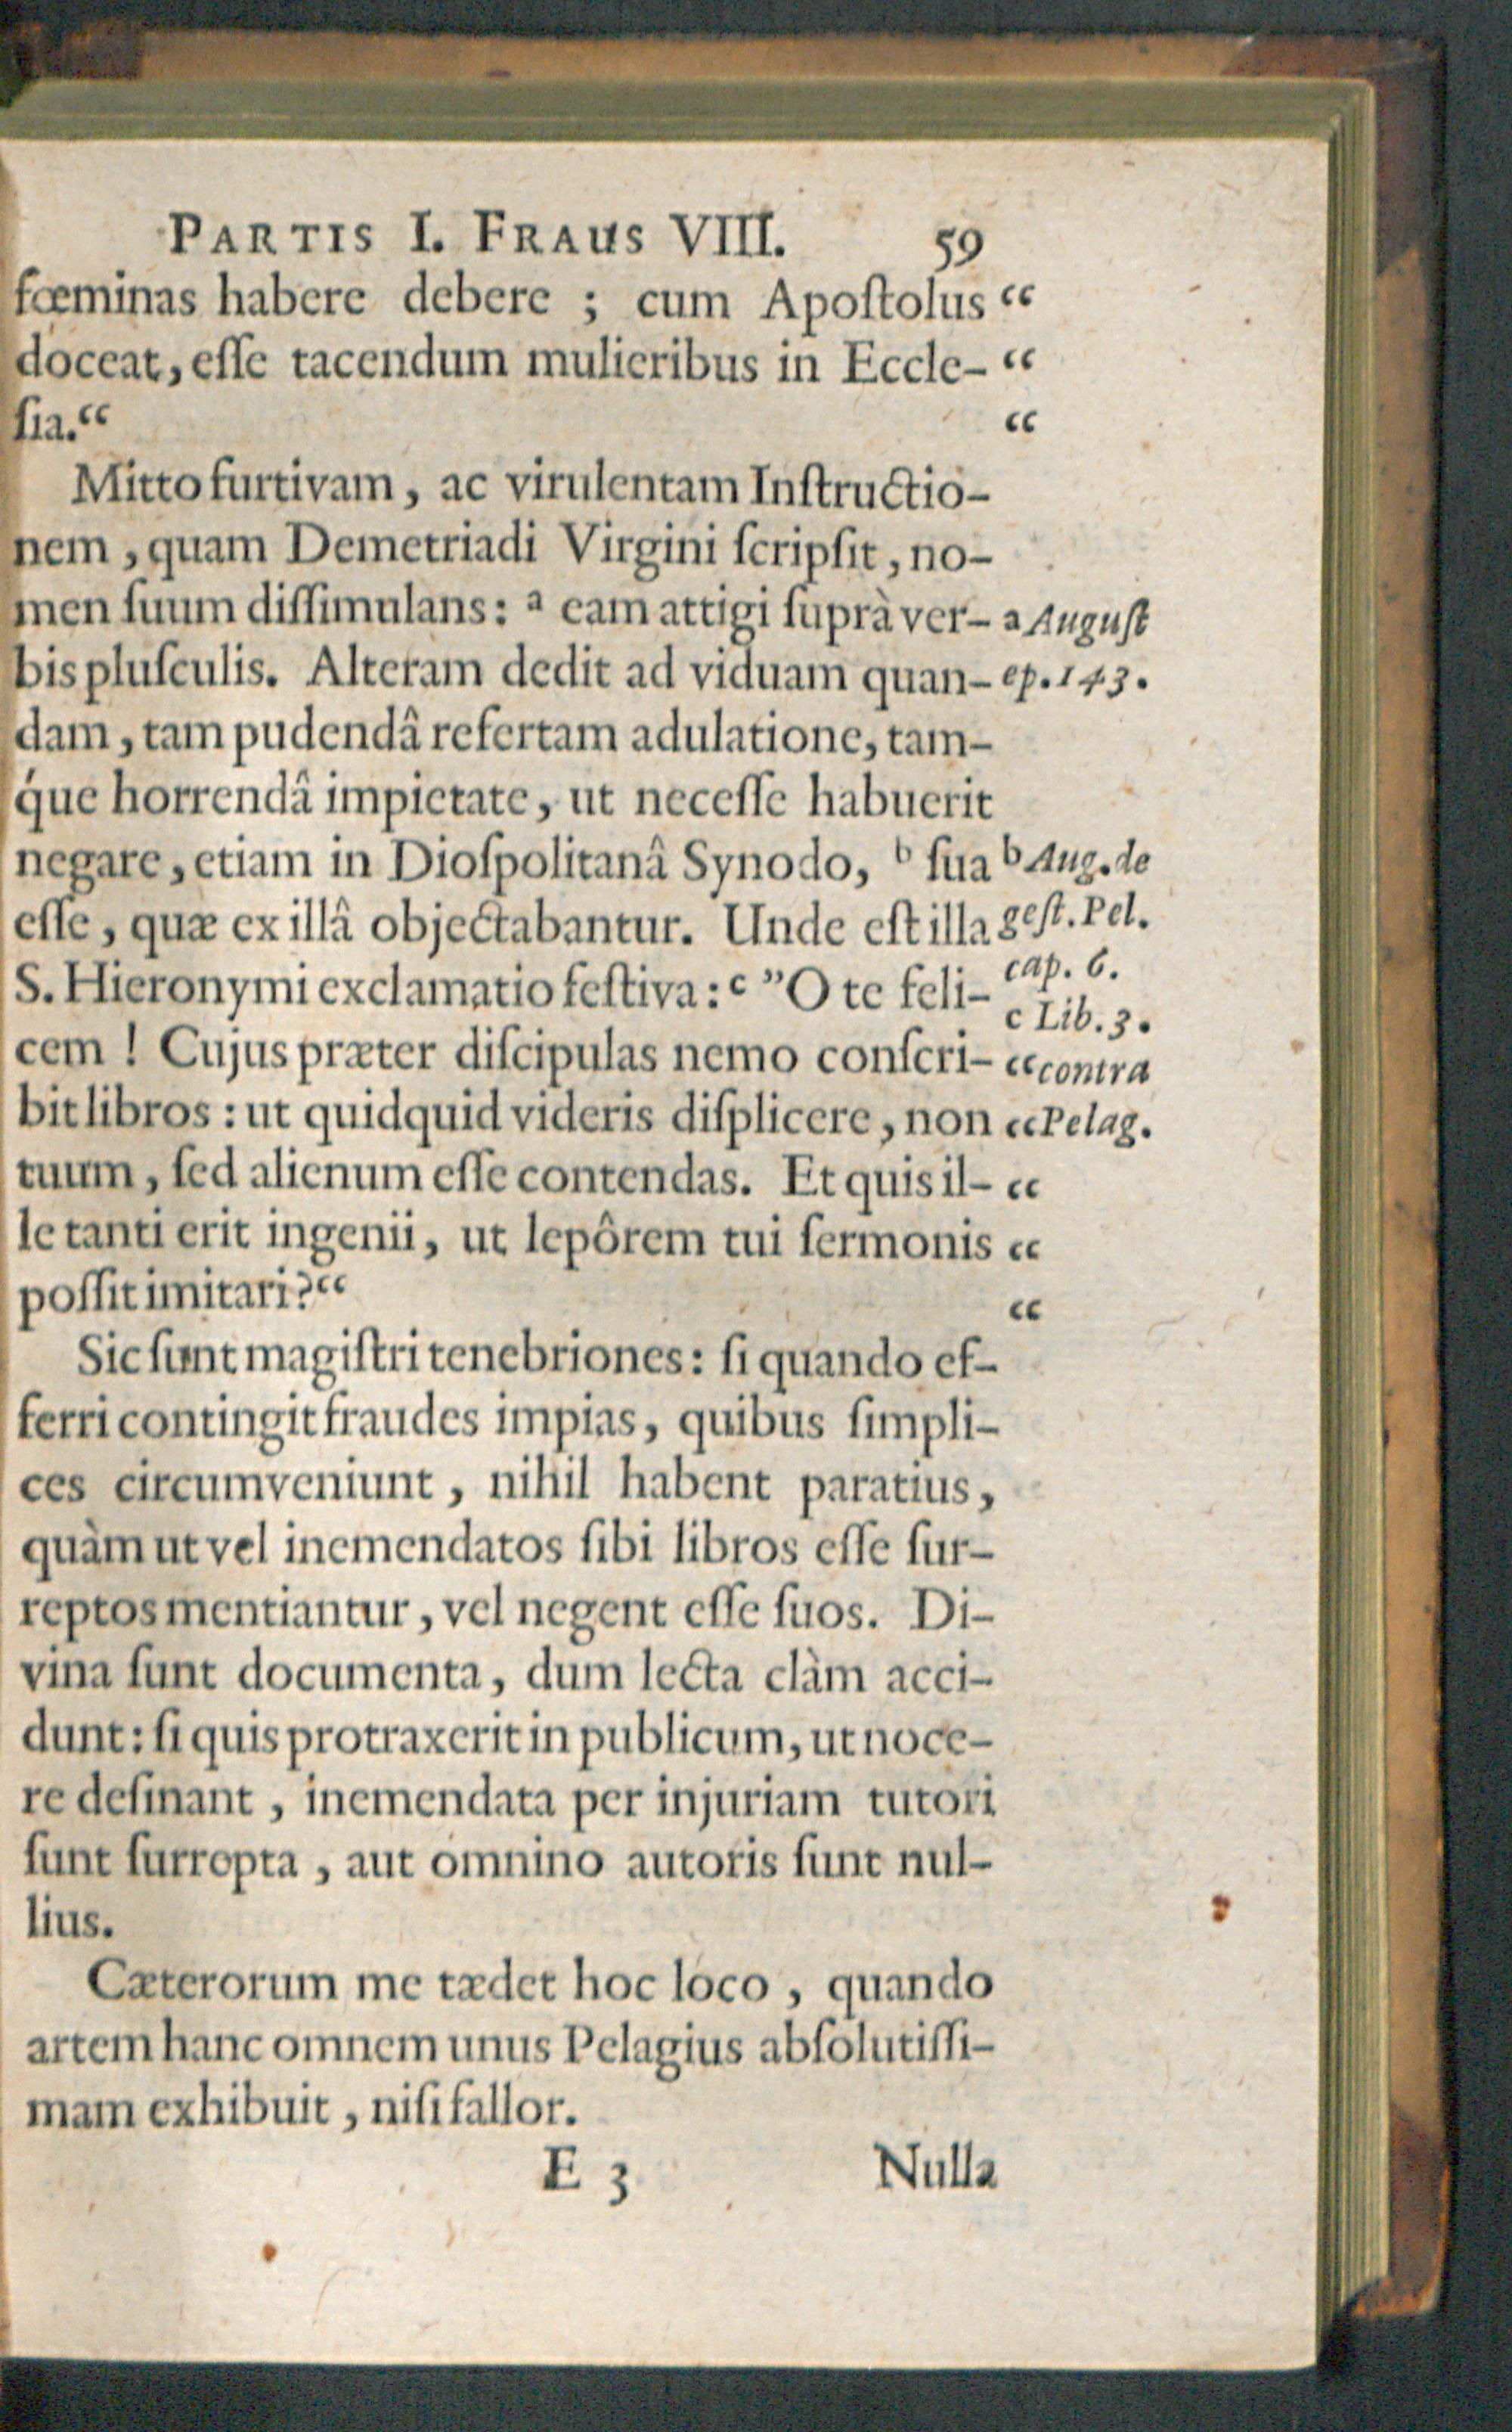 PARTIS I. FRAUS VIII. 59
fœminas habere debere ; cum Apoſtolus “
doceat, eſſe tacendum mulieribus in Eccle- “
ſia.“ “
Mitto furtivam, ac virulentam Inſtructio-
nem, quam Demetriadi Virgini ſcripſit, no-
men ſuum diſſimulans: a eam attigi ſuprà ver- a Auguſt
bis pluſculis. Alteram dedit ad viduam quan- ep. 143.
dam, tam pudendâ refertam adulatione, tam-
q́ue horrendâ impietate, ut neceſſe habuerit
negare, etiam in Dioſpolitanâ Synodo, b ſua b Aug. de
eſſe, quæ ex illâ objectabantur. Unde eſt illa geſt. Pel.
cap. 6.
S. Hieronymi exclamatio feſtiva: c ”O te feli- c Lib. 3.
cem ! Cujus præter diſcipulas nemo conſcri- “ contra
bit libros : ut quidquid videris diſplicere, non “ Pelag.
tuum, ſed alienum eſſe contendas. Et quis il- “
le tanti erit ingenii, ut lepôrem tui ſermonis “
poſſit imitari?“ “
Sic ſunt magiſtri tenebriones: ſi quando ef-
ferri contingit fraudes impias, quibus ſimpli-
ces circumveniunt, nihil habent paratius,
quàm ut vel inemendatos ſibi libros eſſe ſur-
reptos mentiantur, vel negent eſſe ſuos. Di-
vina ſunt documenta, dum lecta clàm acci-
dunt: ſi quis protraxerit in publicum, ut noce-
re deſinant, inemendata per injuriam tutori
ſunt ſurrepta, aut omnino autoris ſunt nul-
lius.
Cæterorum me tædet hoc loco, quando
artem hanc omnem unus Pelagius abſolutiſſi-
mam exhibuit, niſi fallor.
E 3 Nulla